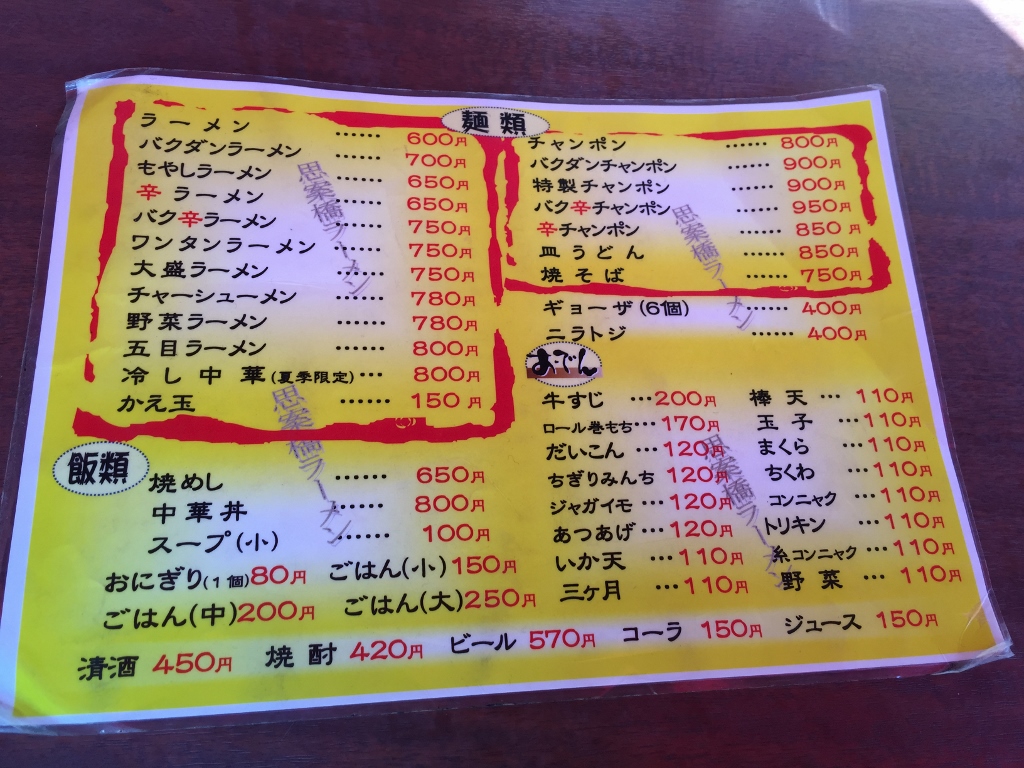 麺類
ラーメン …… 600円
バクダンラーメン …… 700円
もやしラーメン …… 650円
辛ラーメン …… 650円
バク辛ラーメン …… 750円
ワンタンラーメン …… 750円
大盛ラーメン …… 750円
チャーシューメン …… 780円
野菜ラーメン …… 780円
五目ラーメン …… 800円
冷し中華(夏季限定)… 800円
かえ玉 …… 150円
チャンポン …… 800円
バクダンチャンポン …… 900円
特製チャンポン …… 900円
バク辛チャンポン …… 950円
辛チャンポン …… 850円
皿うどん …… 850円
焼そば …… 750円
ギョーザ(6個) …… 400円
ニラトジ …… 400円
飯類
焼めし …… 650円
中華丼 …… 800円
スープ(小) …… 100円
おにぎり(1個)80円 ごはん(小)150円
ごはん(中)200円 ごはん(大)250円
おでん
牛すじ …200円
ロール巻もち…170円
だいこん …120円
ちぎりみんち 120円
ジャガイモ …120円
あつあげ …120円
いか天 …110円
三ヶ月 …110円
棒天 …110円
玉子 …110円
まくら …110円
ちくわ …110円
コンニャク …110円
トリキン …110円
糸コンニャク …110円
野菜 …110円
清酒 450円 焼酎 420円 ビール 570円 コーラ 150円 ジュース 150円
思案橋ラーメン
思案橋ラーメン
思案橋ラーメン
思案橋ラーメン